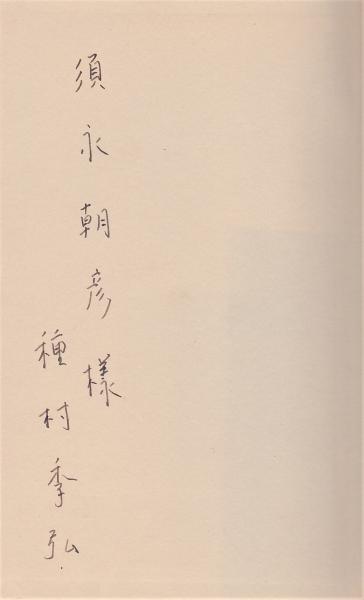 須永朝彦様
種村季弘